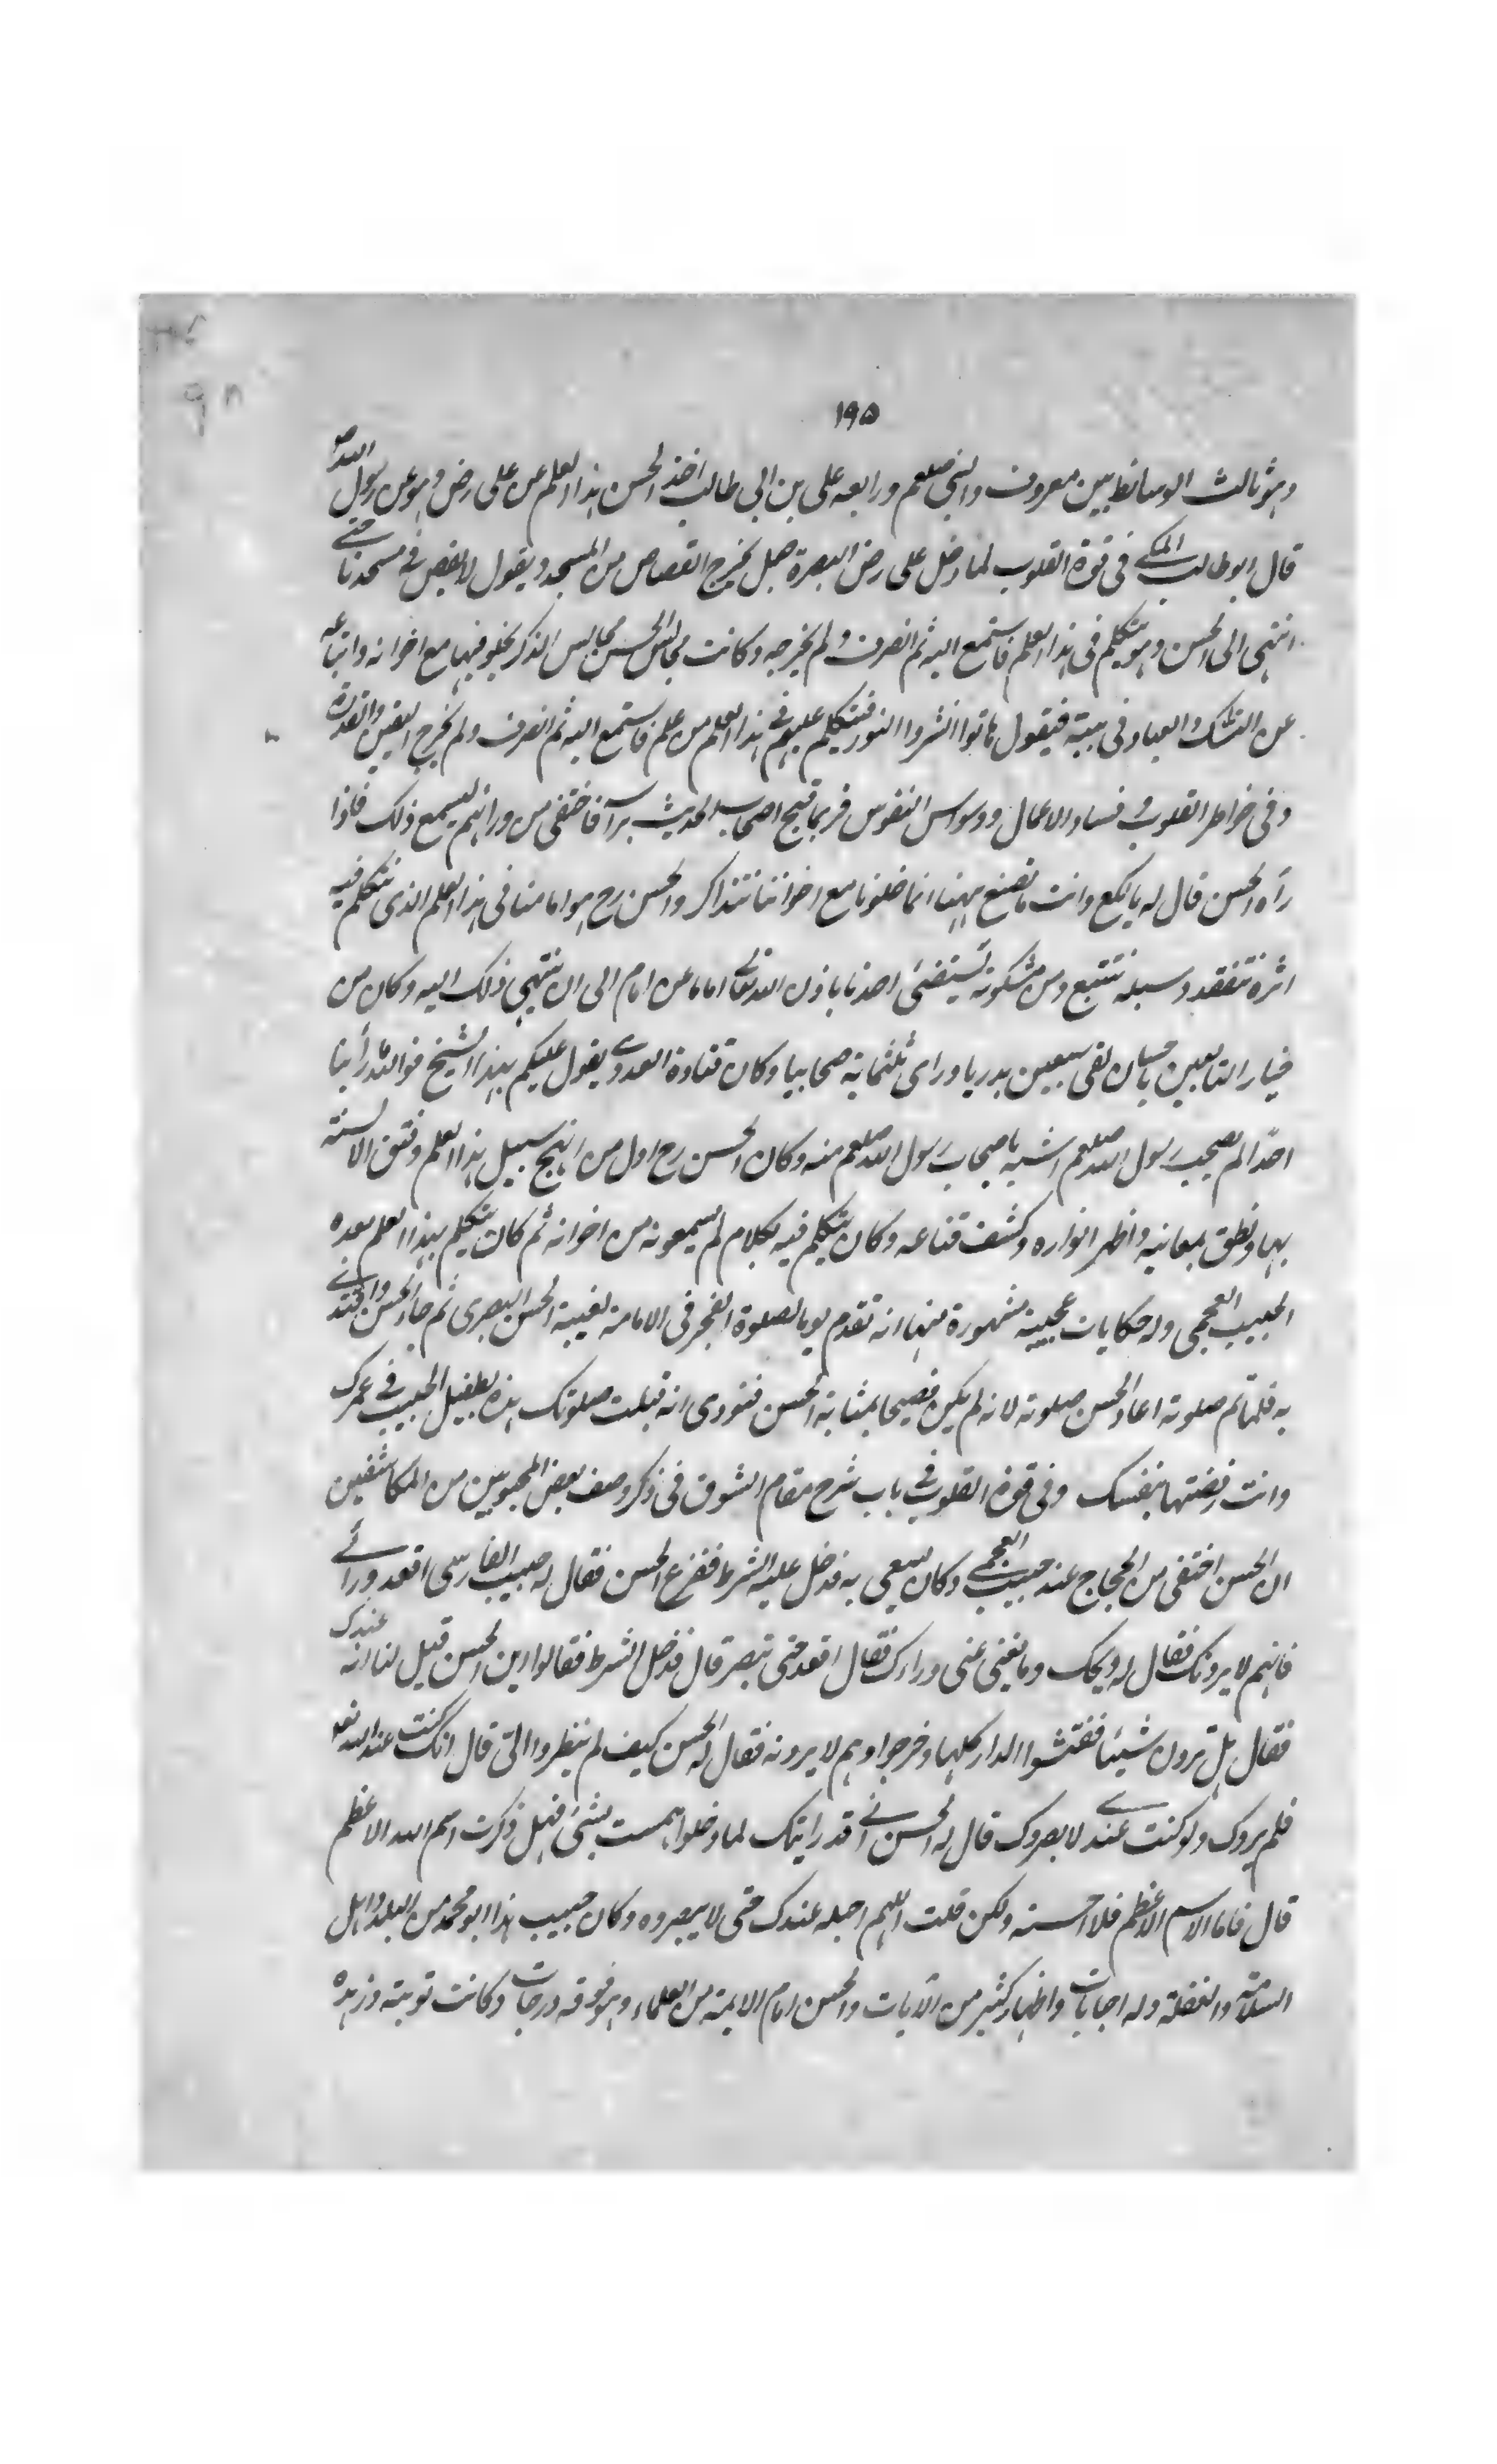 ١٩٥
وهو ثالث الوسائط بين معروف والنبي صلعم ورابعه علي بن ابي طالب اخذ الحسن هذا العلم عن علي رض وهو عن رسول الله ص
قال ابو طالب المكي في قوة القلوب لما دخل علي رض البصرة جعل يخرج القصاص من المسجد ويقول لا يقص في مسجدنا حتى
انتهى الى الحسن وهو يتكلم في هذا العلم فاستمع اليه ثم انصرف ولم يخرجه وكانت مجالس الحسن مجالس الذكر يخلو فيها مع اخوانه واتباعه
عن النساك والعباد في بيته فيقول هاتوا انشروا النور فيتكلم عليهم في هذا العلم من علم فاستمع اليه ثم انصرف ولم يخرج اليقين والقدرة
وفي خواطر القلوب وفساد الاعمال ووسواس النفوس فربما قبح اصحاب الحديث برأسه فاختفى من ورائهم ليسمع ذلك فاذا
رآه الحسن قال له يا لكع وانت ما تصنع ههنا انما خلونا مع اخواننا نتذاكر والحسن رح هو امامنا في هذا العلم الذي نتكلم فيه
اثره نتفقد وسبله نتتبع ومن مشكوته نستضئ اخذنا باذن الله تعالى اماما عن امام الى ان ينتهي ذلك اليه وكان من
خيار التابعين باحسان لقي سبعين بدريا وراى ثلثماية صحابيا وكان قتادة العدوي يقول عليكم بهذا الشيخ فوالله ما رأينا
احدا لم يصحب رسول الله صلعم اشبه باصحاب رسول الله صلعم منه وكان الحسن رح اول من انهج سبيل هذا العلم وفتق الالسنة
بها ونطق بمعانيه واظهر انواره وكشف قناعه وكان يتكلم فيه بكلام لم يسمعونه من اخوانه ثم كان يتكلم بهذا العلم بعده
الحبيب العجمي وله حكايات عجيبة مشهورة منها انه تقدم يوما لصلوة الفجر في الامامة لغيبة الحسن البصري ثم جاء الحسن واقتدى
به فلما تم صلوته اعاد الحسن صلوته لانه لم يكن فصيحا بمثابة الحسن فنودي انه قبلت صلوتك هذه بطفيل الحبيب في عمرك
وانت رفضتها بنفسك وفي قوة القلوب في باب شرح مقام الشوق في ذكر وصف بعض المحبوبين من المكاشفين
ان الحسن اختفى من الحجاج عند حبيب العجمي وكان يسعى به فدخل عليه الشرط ففزع الحسن فقال له حبيب الفارسي اقعد ورائي
فانهم لا يرونك فقال له ويحك وما يغني عني وراءك فقال اقعد حتى تبصر قال فدخل الشرط فقالوا اين الحسن قيل لنا انه عندك
فقال هل ترون شيئا ففتشوا الدار كلها وخرجوا وهم لا يرونه فقال له الحسن كيف لم ينظروا الي قال انك كنت عند الله تعالى
فلم يروك ولو كنت عندي لابصروك قال له الحسن اني قد رايتك لما دخلوا همست بشئ فهل ذكرت اسم الله الاعظم
قال فاما الاسم الاعظم فلا احسنه ولكن قلت اللهم اجعله عندك حتى لا يبصروه وكان حبيب هذا ابو محمد من البله واهل
السلامة والغفلة وله اجابات واظهار كثير من الآيات والحسن امام الايمة من العلماء وهو فوقه درجات وكانت توبته وزهده